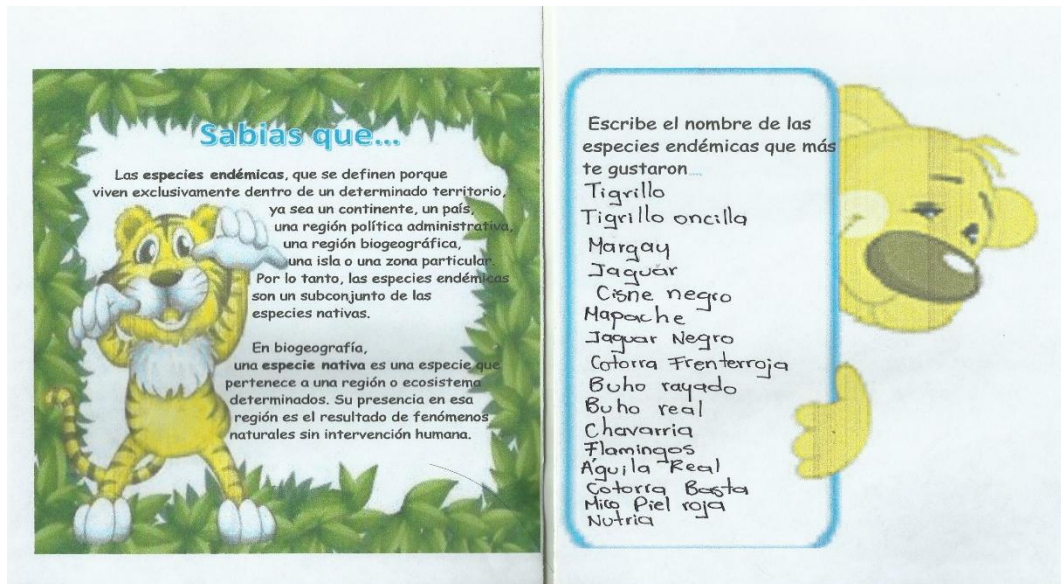 Sabias que...
Las especies endémicas, que se definen porque
viven exclusivamente dentro de un determinado territorio,
ya sea un continente, un país,
una región política administrativa,
una región biogeográfica,
una isla o una zona particular.
Por lo tanto, las especies endémicas
son un subconjunto de las
especies nativas.
En biogeografía,
una especie nativa es una especie que
pertenece a una región o ecosistema
determinados. Su presencia en esa
región es el resultado de fenómenos
naturales sin intervención humana.
Escribe el nombre de las
especies endémicas que más
te gustaron....
Tigrillo
Tigrillo oncilla
Margay
Jaguar
Cisne negro
Mapache
Jaguar Negro
Cotorra Frenterroja
Buho rayado
Buho real
Chavarria
Flamingos
Águila Real
Cotorra Basta
Mico Piel roja
Nutria